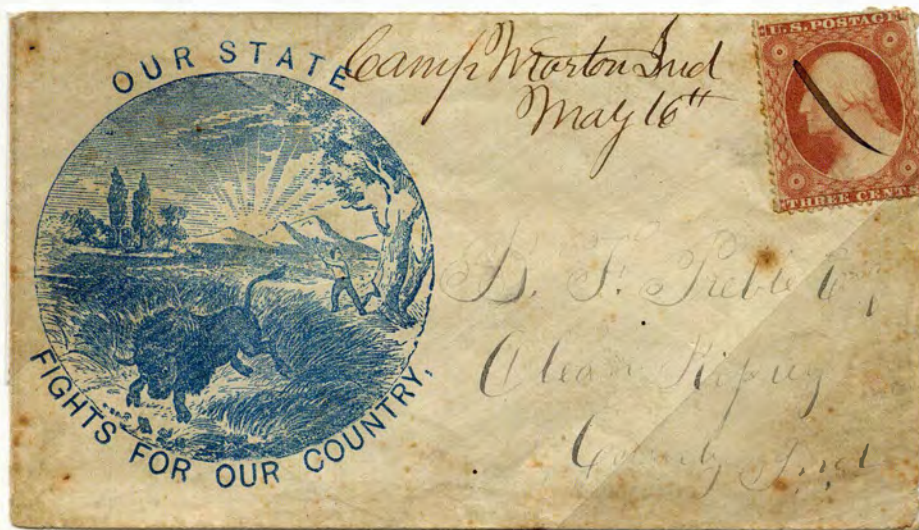 OUR STATE
FIGHTS FOR OUR COUNTRY,
Camp Morton Ind
May 16th
U.S. POSTAGE
THREE CENTS
B. F. Preble
Olean Ripley
County Ind